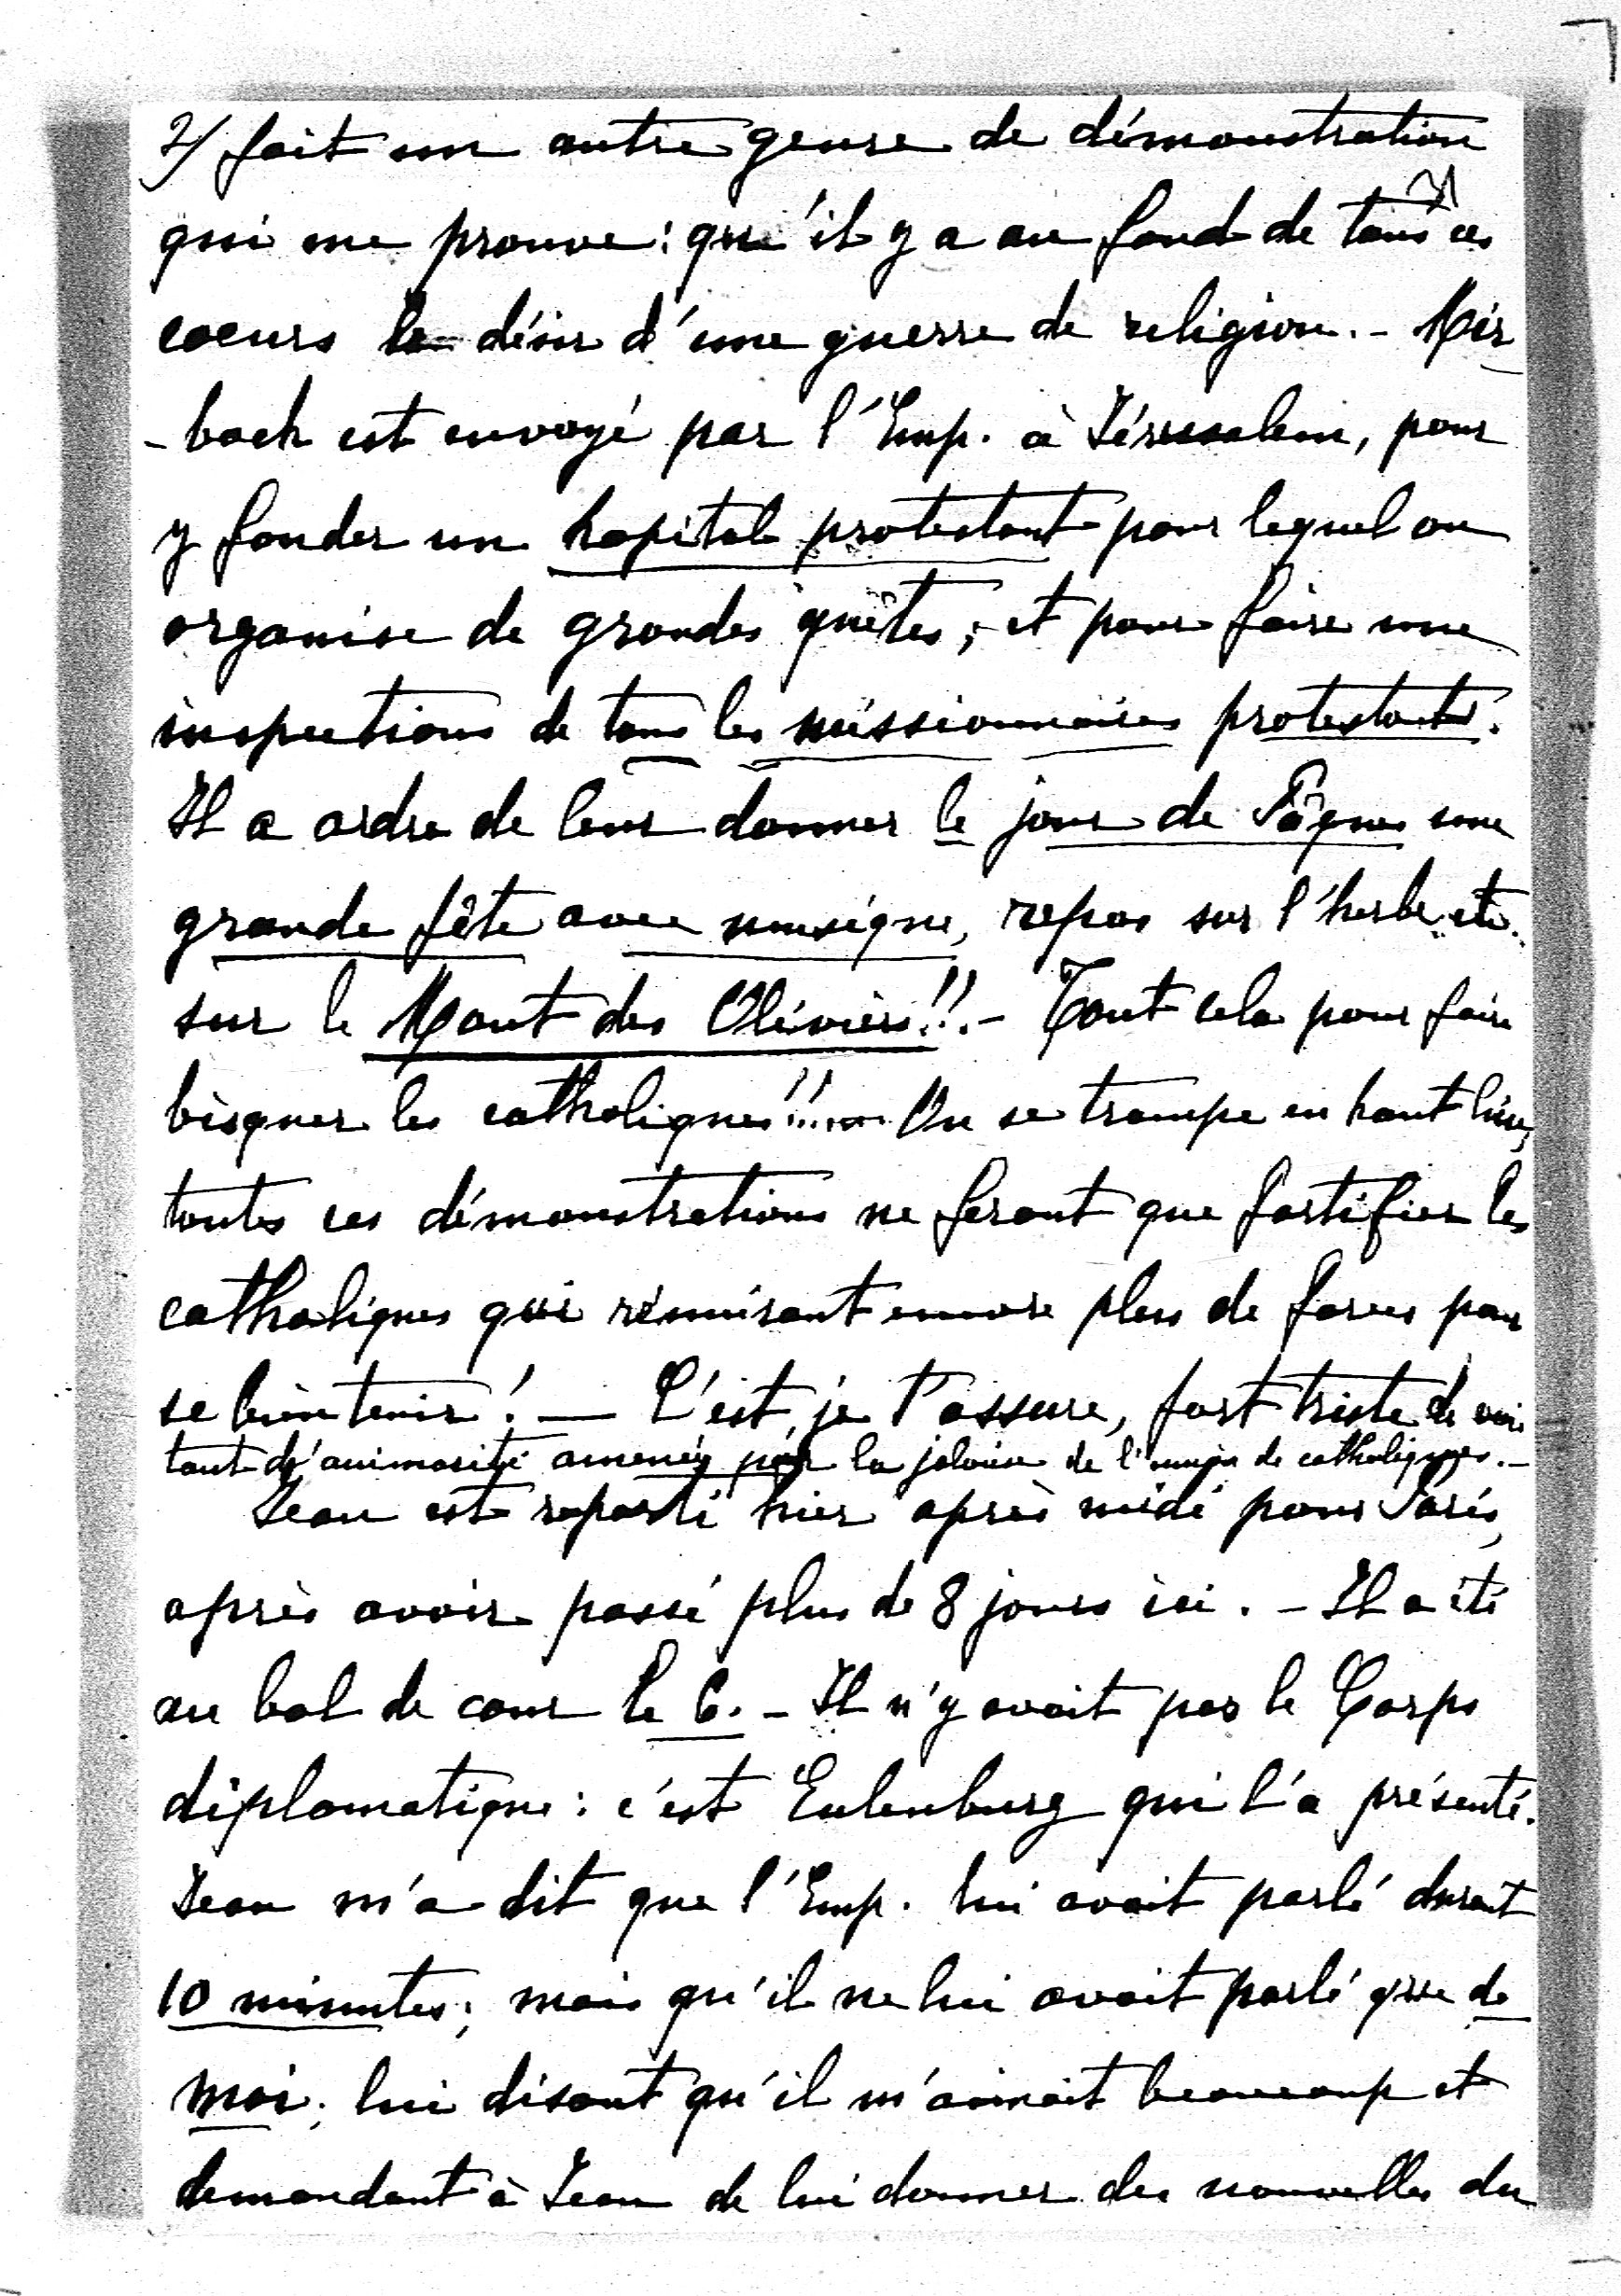 2/ fait un autre genre de démonstration
qui me prouve: qu'il y a au fond de tous ces
coeurs le désir d'une guerre de religion. - Mir
-bach est envoyé par l'Emp. à Jérusalem, pour
y fonder un hopital protestant pour lequel on
organise de grandes quêtes; et pour faire une
inspections de tous les missionnaires protestants.
Il a ordre de leur donner le jour de Pâques une
grande fête avec musique, repas sur l'herbe etc.
sur le Mont des Oliviers!! - Tout cela pour faire
bisquer les catholiques!!... On se trompe en haut lieu,
toutes ces démonstrations ne feront que fortifier les
catholiques qui réunisant encore plus de forces pour
se bien tenir! — C'est, je t'assure, fort triste de voir
tant d'animosité amenée par la jalousie de l'union de catholiques. -
Jean est reparti hier après midi pour Paris,
après avoir passé plus de 8 jours ici. - Il a été
au bal de cour le 6. - Il n'y avait pas le Corps
diplomatique: c'est Eulenburg qui l'a présenté.
Jean m'a dit que l'Emp. lui avait parlé durant
10 minutes; mais qu'il ne lui avait parlé que de
moi; lui disant qu'il m'aimait beaucoup et
demandant à Jean de lui donner des nouvelles du